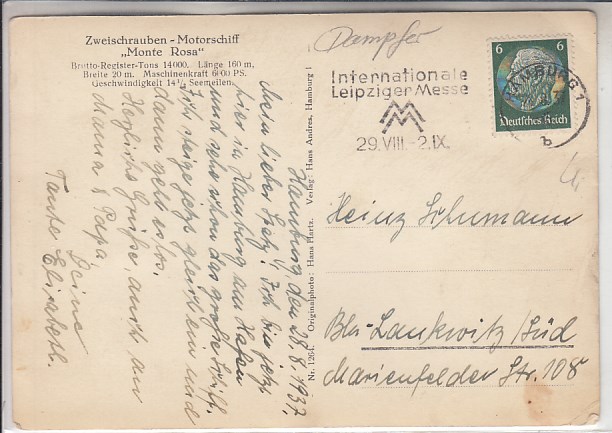 Zweischrauben - Motorschiff
„Monte Rosa"
Brutto-Register-Tons 14000. Länge 160 m,
Breite 20 m. Maschinenkraft 6000 PS.
Geschwindigkeit 14½ Seemeilen.
Hamburg, den 28.8.1937.
Mein lieber Heinz! Ich bin jetzt
hier in Hamburg am Hafen
und sehe schon das große Schiff.
Ich steige jetzt gleich ein und
dann geht es los.
Herzliche Grüße, auch an
Mama & Papa
Deine
Tante Elisabeth.
Nr. 1264. Originalphoto: Hans Hartz. Verlag: Hans Andres, Hamburg 1
Dampfer
Internationale
Leipziger Messe
MM
29.VIII.-2.IX.
6 6
Deutsches Reich
HAMBURG 1
b
Heinz Schumann
Bln-Lankwitz/Süd
Marienfelder Str. 108